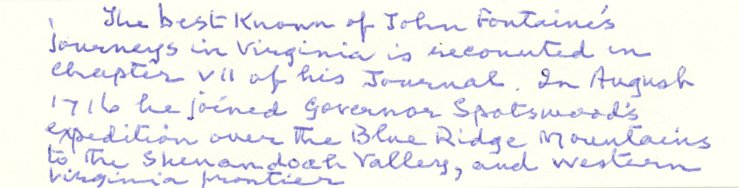 The best known of John Fontaine's
journeys in Virginia is recounted in
chapter VII of his Journal. In August
1716 he joined Governor Spotswood's
expedition over the Blue Ridge Mountains
to the Shenandoah Valley, and western
Virginia frontier